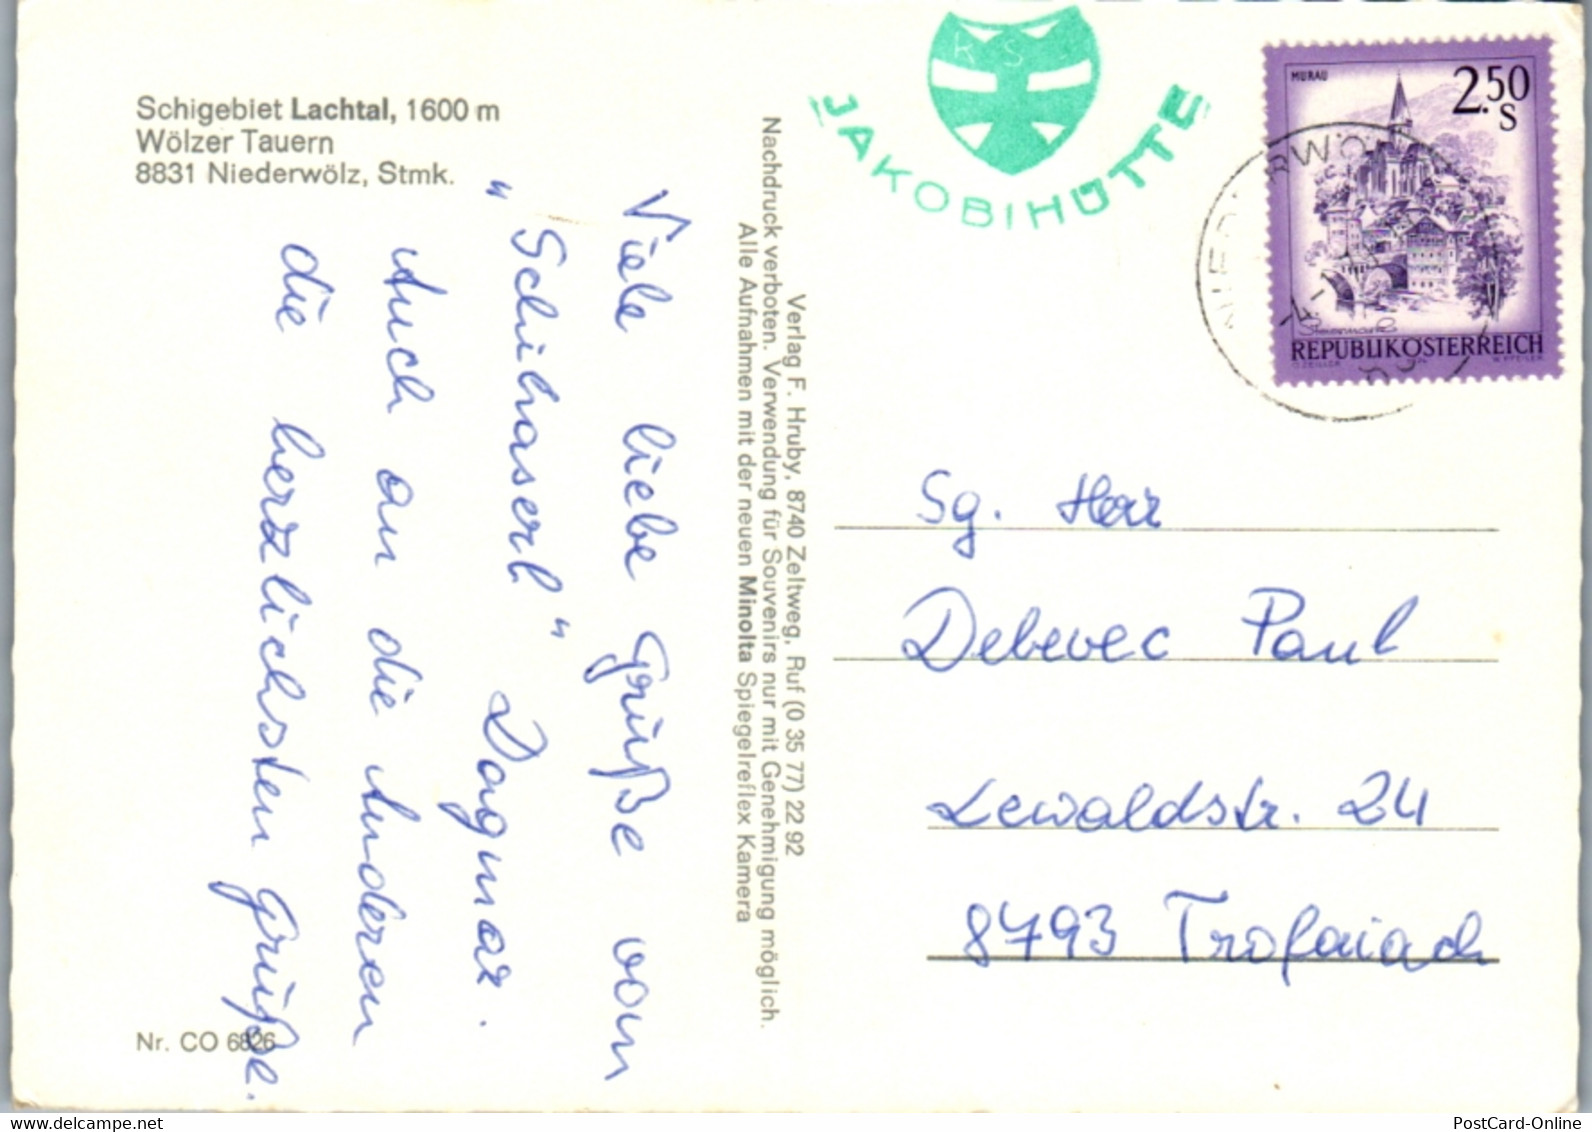 Schigebiet Lachtal, 1600 m
Wölzer Tauern
8831 Niederwölz, Stmk.
Viele liebe Grüße vom
"Schihaserl" Dagmar.
Auch an die Anderen
die herzlichsten Grüße.
Nr. CO 6826
Verlag F. Hruby, 8740 Zeltweg, Ruf (0 35 77) 22 92
Nachdruck verboten. Verwendung für Souvenirs nur mit Genehmigung möglich.
Alle Aufnahmen mit der neuen Minolta Spiegelreflex Kamera
K S
JAKOBIHÜTTE
MURAU
2.50
S
Steiermark
REPUBLIK ÖSTERREICH
Sg. Herr
Debevec Paul
Lewaldstr. 24
8793 Trofaiach
PostCard-Online